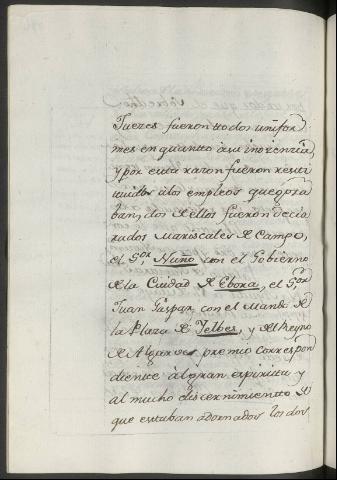 Juezes fueron ttodos unifor
mes en quantto a su inozenzia,
y por esta razon fueron resti
tuidos a los empleos que goza
ban, dos de ellos fueron decla
rados Mariscales de Campo,
el S.or Nuño con el Govierno
de la Ciudad de Ebora, el S.or
Juan Gaspar con el Mando de
la Plaza de Yelbes, y del Reyno
de Algarves premio correspon
diente al gran espiritu y
al mucho discernimientto de
que estaban adornados los dos